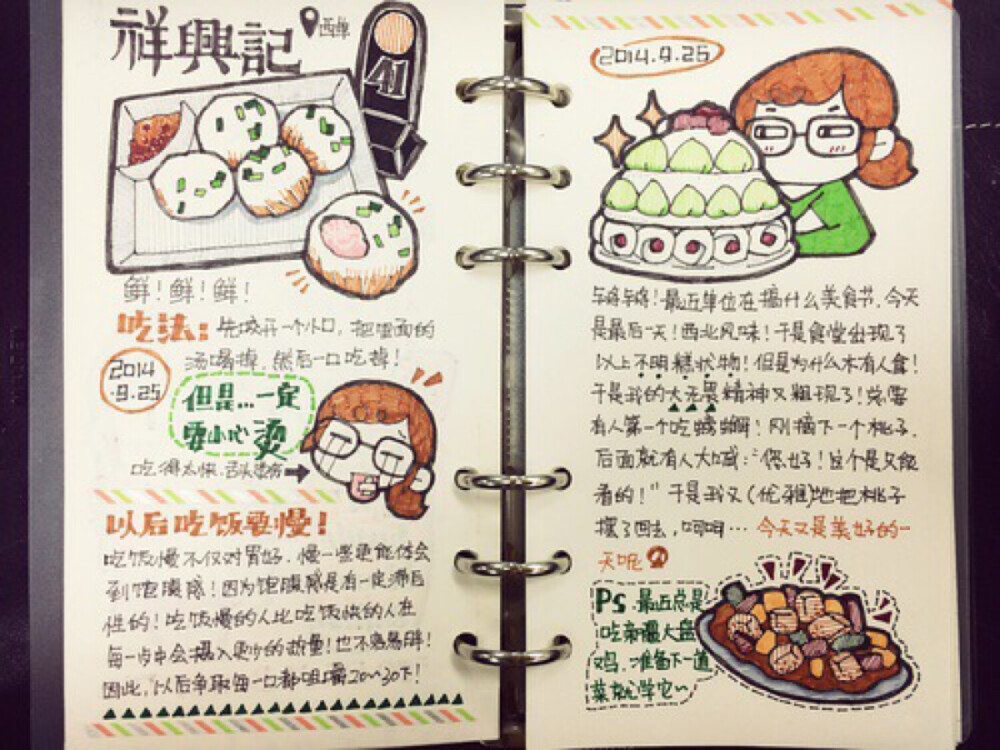 祥興記
西单
41
鲜！鲜！鲜！
吃法：先咬开一个小口，把里面的
汤喝掉，然后一口吃掉！
2014
.9.25
但是...一定
要小心烫
吃得太快，舌头烫伤
以后吃饭要慢！
吃饭慢不仅对胃好，慢一些更能体会
到饱腹感！因为饱腹感是有一定滞后
性的！吃饭慢的人比吃饭快的人在
每一步中会摄入更少的热量！也不容易胖！
因此，以后争取每一口都咀嚼20~30下！
2014.9.25
最近单位在搞什么美食节，今天
是最后一天！西北风味！于是食堂出现了
以上不明糕状物！但是为什么木有人食！
于是我的大无畏精神又粗现了！总要
有人第一个吃螃蟹！刚摘下一个桃子，
后面就有人大喊："您好！这个是只能
看的！"于是我又(优雅)地把桃子
摆了回去，呵呵…今天又是美好的一
天呢
Ps.最近总是
吃新疆大盘
鸡，准备下一道
菜就学它~